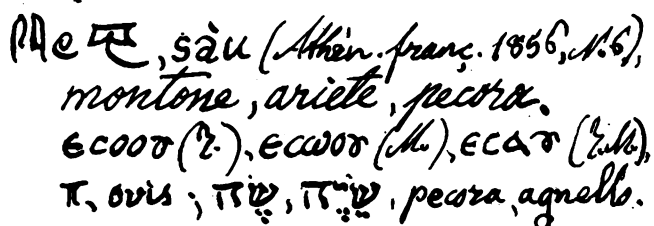 sàu (Athén. franç. 1856, N. 6),
montone, ariete, pecora.
ⲉⲥⲟⲟⲩ (ⲧ.), ⲉⲥⲱⲟⲩ (M.), ⲉⲥⲁⲩ (ⲧ. M.),
ⲡ, ovis; שֶׂה, שֵׂיֶה, pecora, agnello.